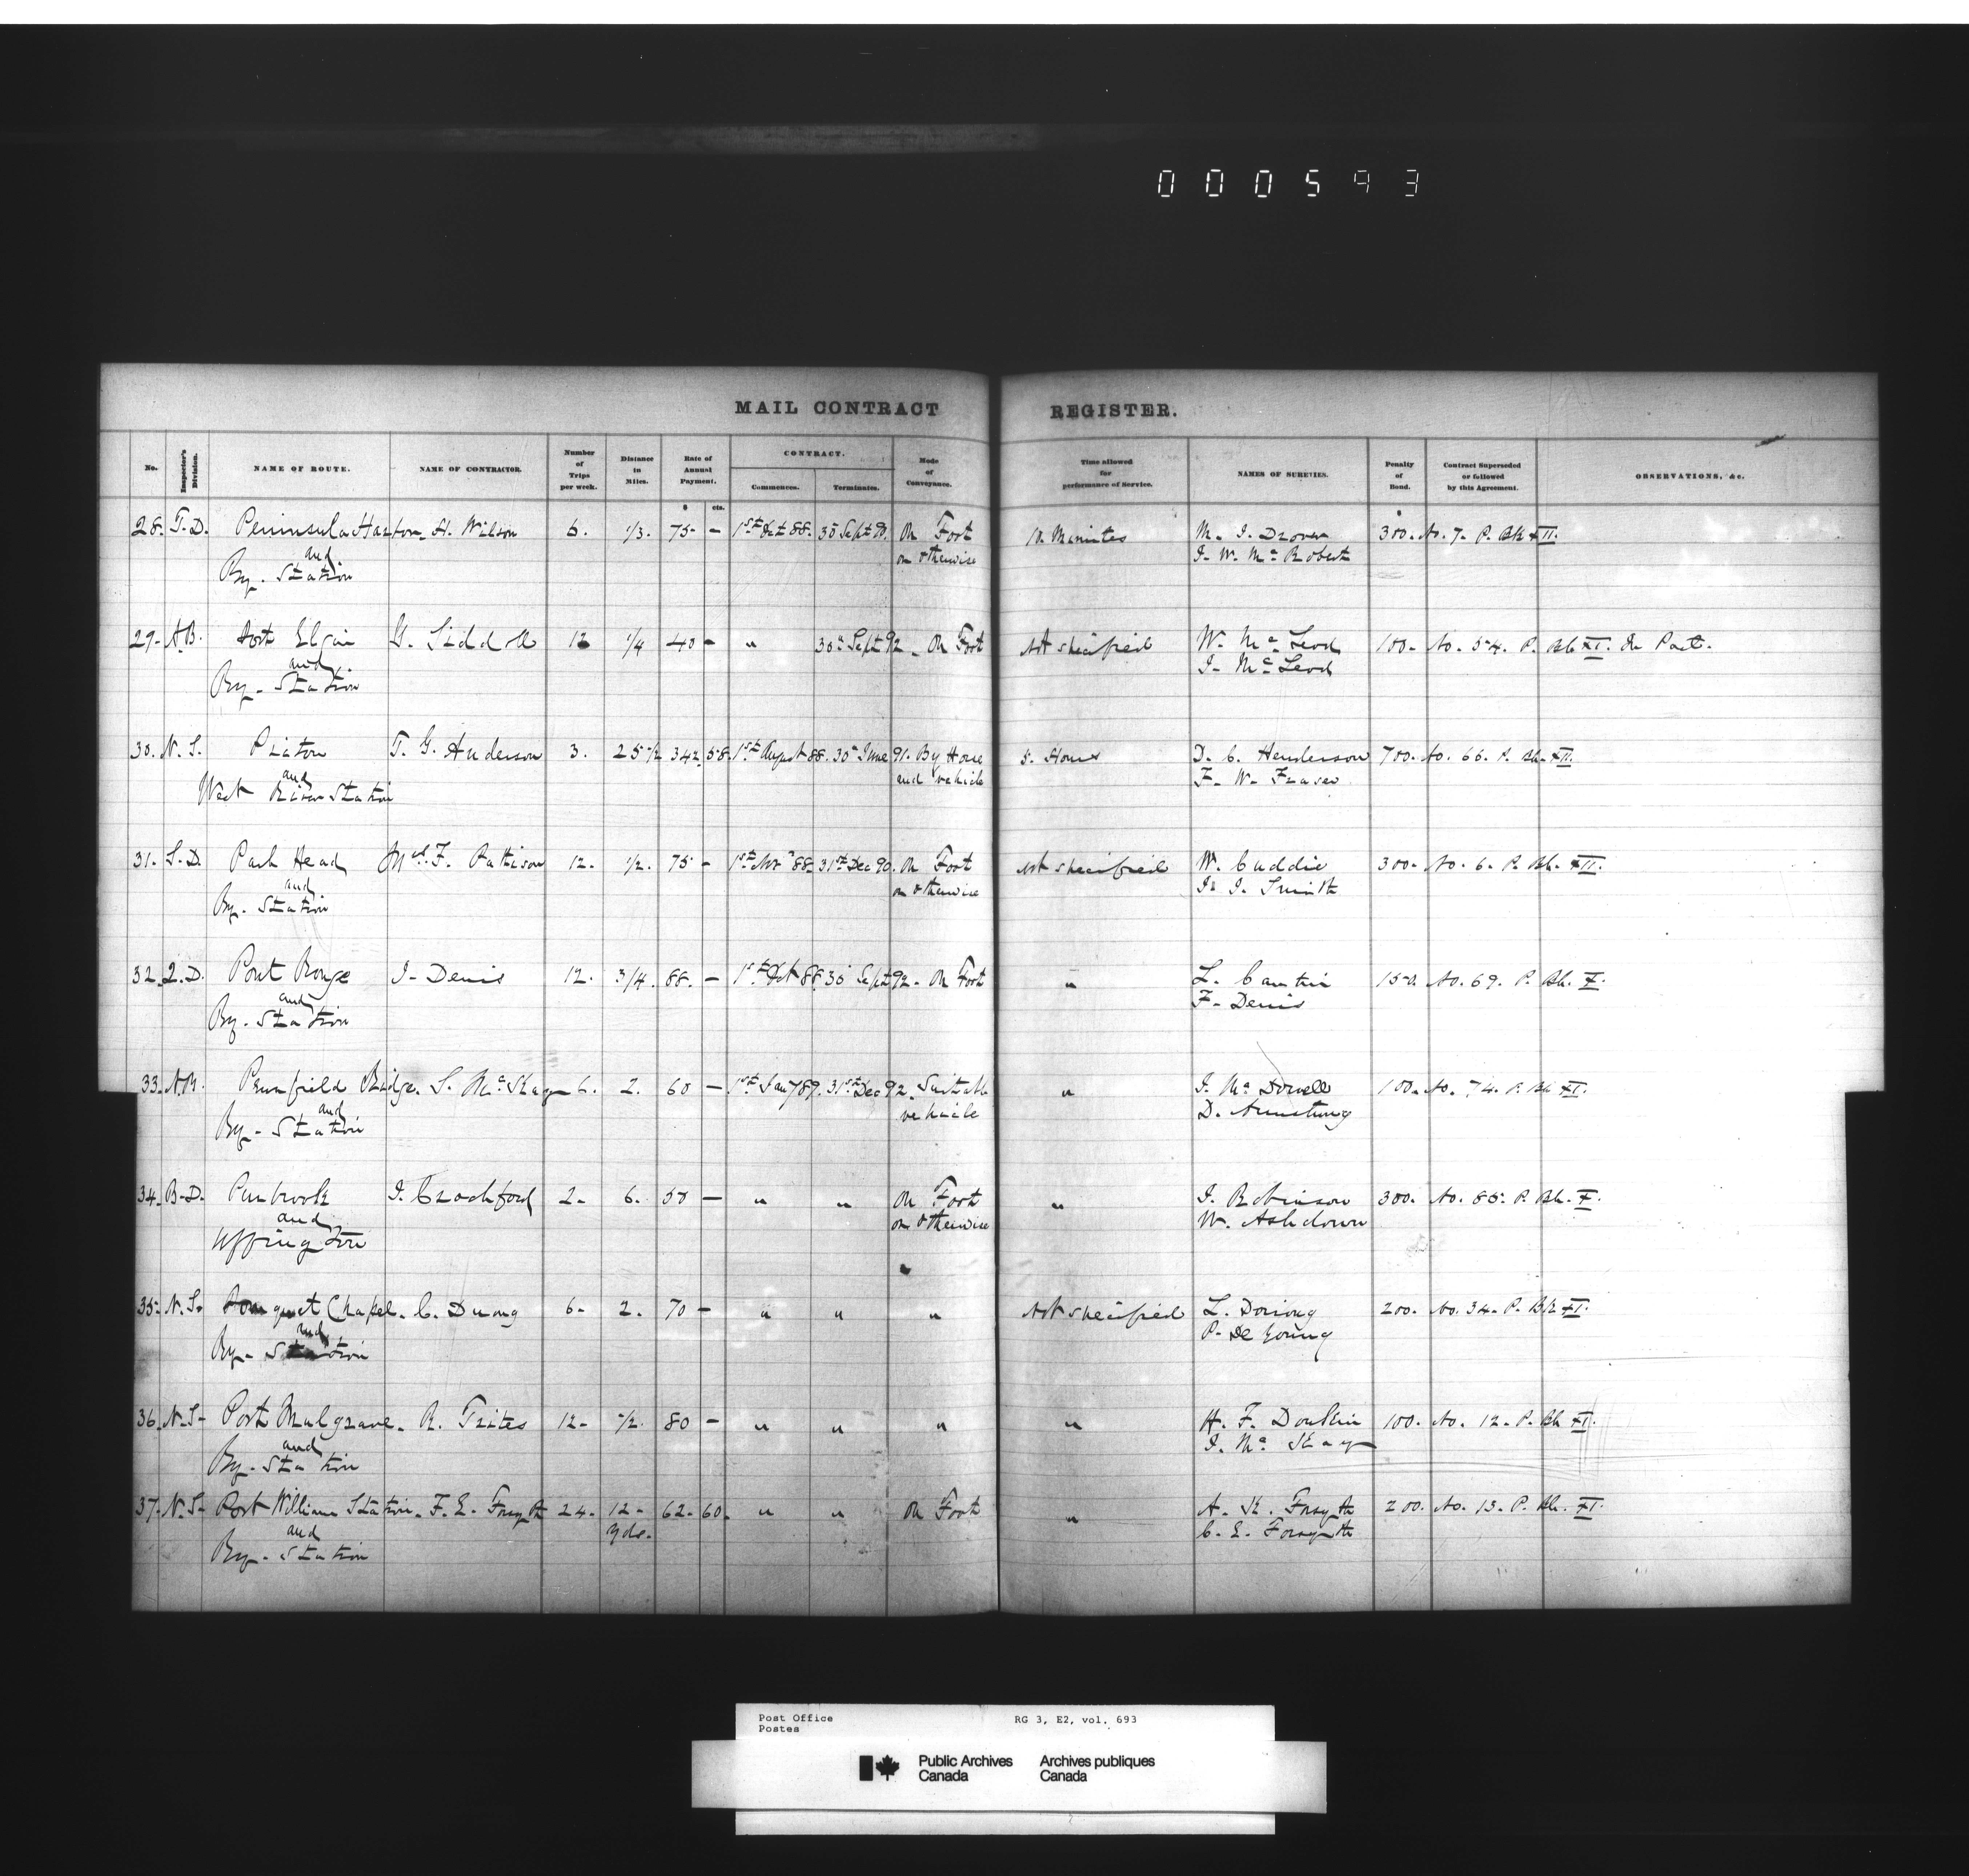 000593
MAIL CONTRACT REGISTER.
No. Inspector's Division. NAME OF ROUTE. NAME OF CONTRACTOR. Number of Trips per week. Distance in Miles. Rate of Annual Payment. CONTRACT. Commences. Terminates. Mode of Conveyance. Time allowed for performance of Service. NAMES OF SURETIES. Penalty of Bond. Contract Superseded or followed by this Agreement. OBSERVATIONS, &c.
$ cts. $
28. T.D. Peninsula Harbor. H. Wilson 6. 1/3. 75- – 1st Oct 88. 30 Sept 90. On Foot 10 Minutes M. J. Drover 300. No. 7. P. Bk XII.
and or otherwise J. W. Mc Robert
By. Station
29. N.B. Port Elgin G. Siddall 12 1/4 40 – " 30th Sept 92. On Foot Not specified W. Mc Leod 100- No. 54. P. Bk XI. In Part.
and J. Mc Leod
By. Station
30. N.S. Pictou T. G. Anderson 3. 25 1/2 342 58. 1st August 88. 30th June 91. By Horse 5. Hours D. C. Henderson 700. No. 66. P. Bk. XII.
and and vehicle F. W. Fraser
West River Station
31. S.D. Park Head Mrs. F. Pattison 12. 1/2. 75 – 1st Novr 88 31st Dec 90. On Foot Not specified W. Cuddie 300- No. 6. P. Bk. XII.
and or otherwise J. Smith
By. Station
32. Q.D. Pont Rouge J. Denis 12. 3/4. 88. – 1st Oct 88. 30 Sept 92. On Foot " L. Cantin 150. No. 69. P. Bk. X.
and F. Denis
By. Station
33. N.B. Pennfield Ridge. S. Mc Kay 6. 2. 60 – 1st Jany 89. 31st Dec 92. Suitable " J. Mc Dowell 100. No. 74. P. Bk XI.
and vehicle D. Armstrong
By. Station
34. B.D. Purbrook J. Crockford 2. 6. 50 – " " On Foot " J. Robinson 300. No. 85. P. Bk. X.
and or otherwise W. Ashdown
Uffington
35. N.S. Pomquet Chapel. C. Duong 6. 2. 70 – " " " Not specified L. Doiron 200. No. 34. P. Bk XI.
and P. De Young
By. Station
36. N.S. Port Mulgrave. R. Trites 12. 1/2. 80 – " " " " H. F. Donkin 100. No. 12. P. Bk XI.
and J. Mc Kay
By. Station
37. N.S. Port William Station. F. E. Forsyth 24. 12 62. 60. " " On Foot " A. K. Forsyth 200. No. 13. P. Bk. XI.
and yds. C. E. Forsyth
By. Station
Post Office RG 3, E2, vol. 693
Postes
Public Archives Archives publiques
Canada Canada